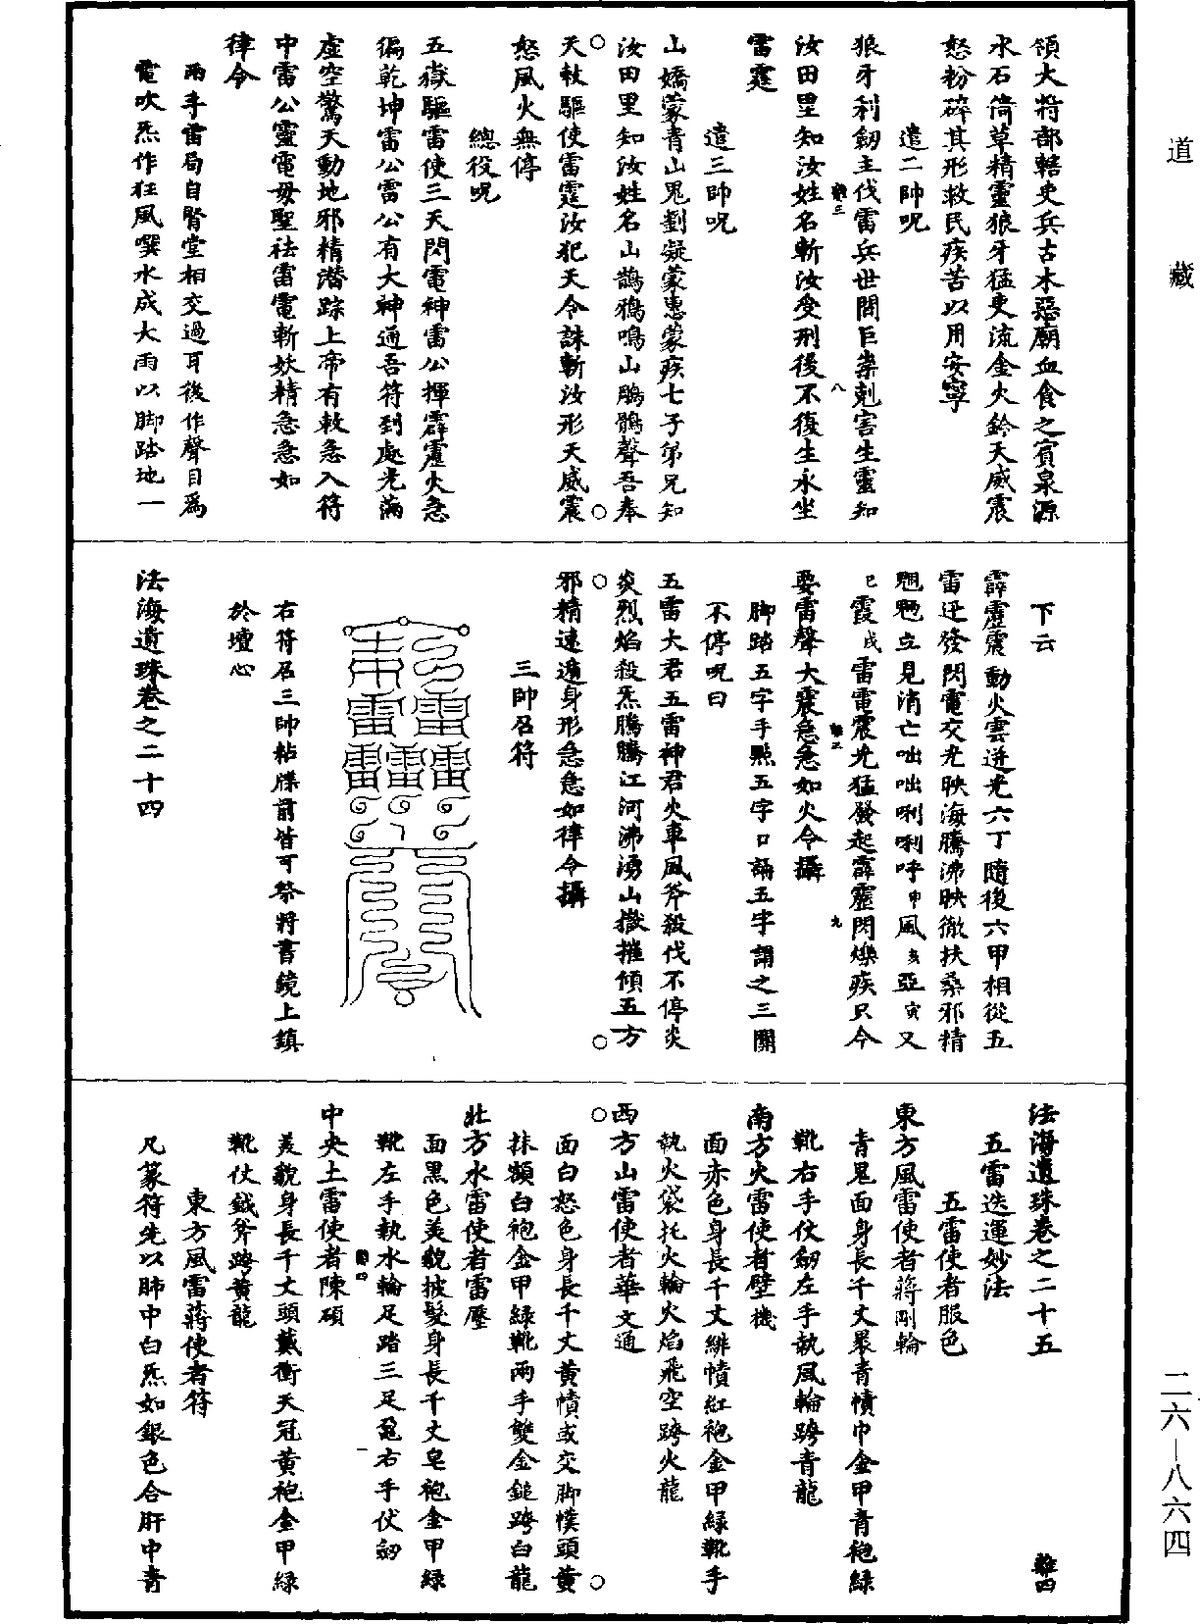 道藏
領大將部轄吏兵古木惡廟血食之賓泉源
水石倚草精靈狼牙猛吏流金火鈴天威震
怒粉碎其形救民疾苦以用安寧
遣二帥呪
狼牙利劒主伐雷兵世間巨祟剋害生靈知
汝田里知汝姓名斬汝受刑後不復生永坐
雷霆
遣三帥呪
山嬌蒙青山鬼劉凝蒙惠蒙疾七子弟兄知
汝田里知汝姓名山鵲鴉鳴山鵰鶻聲吾奉
天敕驅使雷霆汝犯天令誅斬汝形天威震
怒風火無停
總役呪
五嶽驅雷使三天閃電神雷公揮霹靂火急
徧乾坤雷公雷公有大神通吾符到處光滿
虛空驚天動地邪精潛踪上帝有敕急入符
中雷公靈電母聖祛雷電斬妖精急急如
律令
兩手雷局自腎堂相交過耳後作聲目爲
電吹炁作狂風噀水成大雨以脚踏地一
下云
霹靂震動火雲迸光六丁隨後六甲相從五
雷迅發閃電交光映海騰沸映徹扶桑邪精
魍魎立見消亡咄咄唎唎呼申風亥亞寅又
已霞戌雷電震光猛發起霹靂閃爍疾只今
要雷聲大震急急如火令攝
脚踏五字手點五字口誦五字誦之三關
不停呪曰
五雷大君五雷神君火車風斧殺伐不停炎
炎烈焰殺炁騰騰江河沸湧山嶽摧傾五方
邪精速遁身形急急如律令攝
三帥召符
右符召三帥粘牒前皆可祭將書鏡上鎮
於壇心
法海遺珠卷之二十四
法海遺珠卷之二十五 難四
五雷迭運妙法
五雷使者服色
東方風雷使者蔣剛輪
青鬼面身長千丈裹青幘巾金甲青袍緑
靴右手仗劒左手執風輪跨青龍
南方火雷使者壁機
面赤色身長千丈緋幘紅袍金甲緑靴手
執火袋托火輪火焰飛空跨火龍
西方山雷使者華文通
面白怒色身長千丈黃幘或交脚幞頭黃
抹額白袍金甲緑靴兩手雙金鎚跨白龍
北方水雷使者雷壓
面黑色美貌披髮身長千丈皂袍金甲緑
靴左手執水輪足踏三足黿右手仗劒
中央土雷使者陳碩
美貌身長千丈頭戴衝天冠黃袍金甲緑
靴仗鉞斧跨黃龍
東方風雷蔣使者符
凡篆符先以肺中白炁如銀色合肝中青
二六—八六四